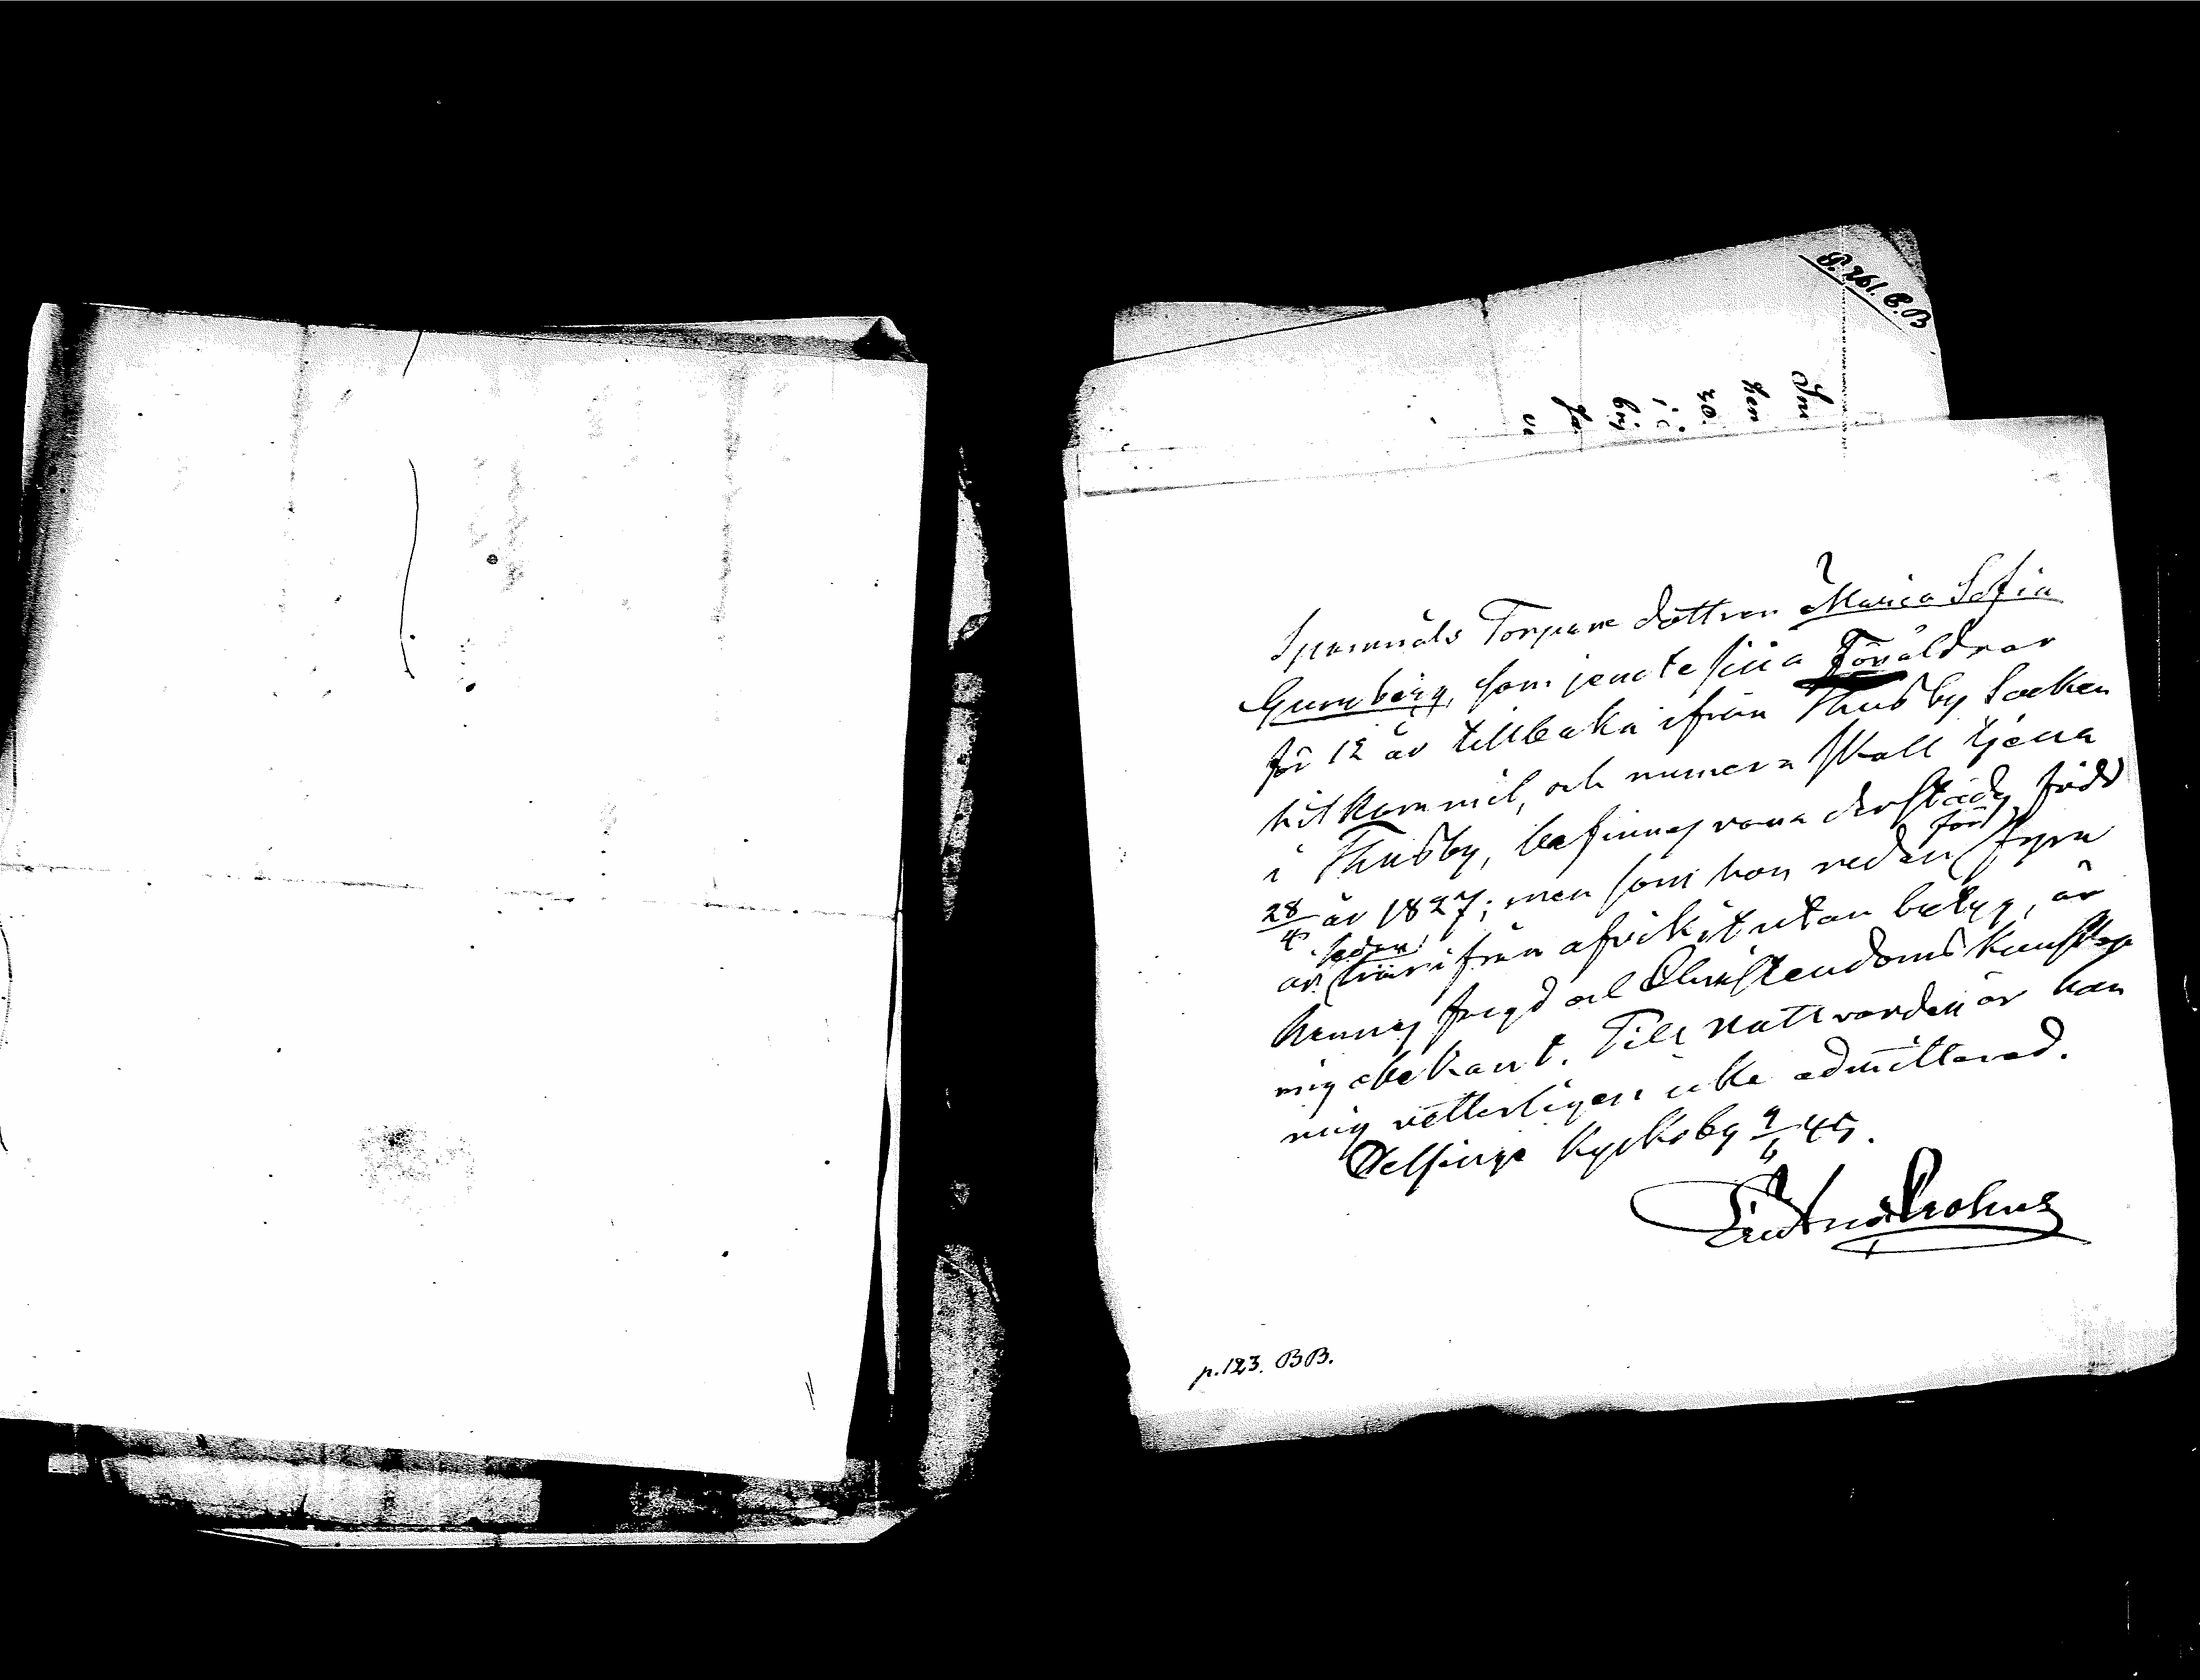 P. 261. B.B
Sm
hen
30.
i
brj
ve
Torpare dottren Maria Sofia
som jemte sina Föräldrar
för 12 år tillbaka ifrån Thusby Socken
hitkommit, och numera skall tjena
i Thusby, befinnes vara derstädes född
28/4 år 1827; men som hon redan för fyra
år sedan härifrån afvikit utan betyg, är
hennes frejd och Christendoms kunskap
mig obekant. Till Nattvarden är hon
mig vetterligen icke admitterad.
Helsinge Kyrkoby 9/6 45.
p. 123. BB.